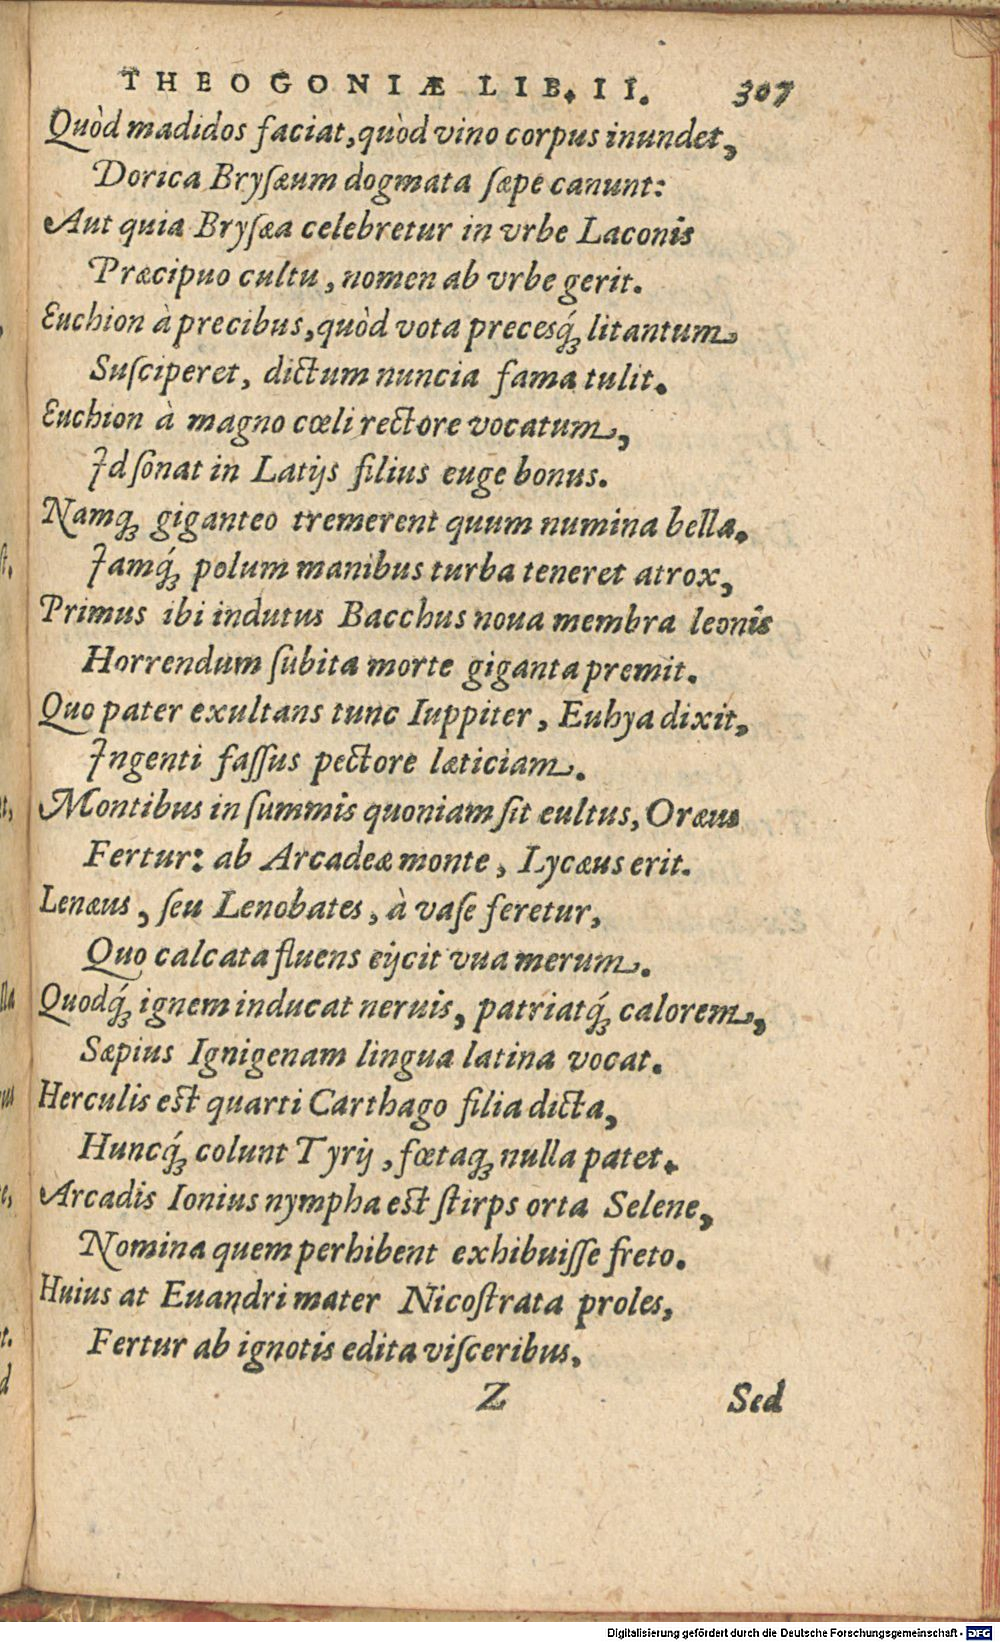 THEOGONIÆ LIB. II. 307
Quòd madidos faciat, quòd vino corpus inundet,
Dorica Bryſæum dogmata ſæpe canunt:
Aut quia Bryſæa celebretur in vrbe Laconis
Præcipuo cultu, nomen ab vrbe gerit.
Euchion à precibus, quòd vota precesq́; litantum
Suſciperet, dictum nuncia fama tulit.
Euchion à magno cœli rectore vocatum,
Id ſonat in Latijs filius euge bonus.
Namq; giganteo tremerent quum numina bella.
Iamq́; polum manibus turba teneret atrox,
Primus ibi indutus Bacchus noua membra leonis
Horrendum ſubita morte giganta premit.
Quo pater exultans tunc Iuppiter, Euhya dixit,
Ingenti faſſus pectore læticiam.
Montibus in ſummis quoniam ſit eultus, Oræus
Fertur: ab Arcadeæ monte, Lycæus erit.
Lenæus, ſeu Lenobates, à vaſe feretur,
Quo calcata fluens eijcit vua merum.
Quodq́; ignem inducat neruis, patriatq́; calorem,
Sæpius Ignigenam lingua latina vocat.
Herculis est quarti Carthago filia dicta,
Huncq́; colunt Tyrij, fœtaq; nulla patet.
Arcadis Ionius nympha est ſtirps orta Selene,
Nomina quem perhibent exhibuiſſe freto.
Huius at Euandri mater Nicoſtrata proles,
Fertur ab ignotis edita viſceribus,
Z Sed
Digitalisierung gefördert durch die Deutsche Forschungsgemeinschaft - DFG